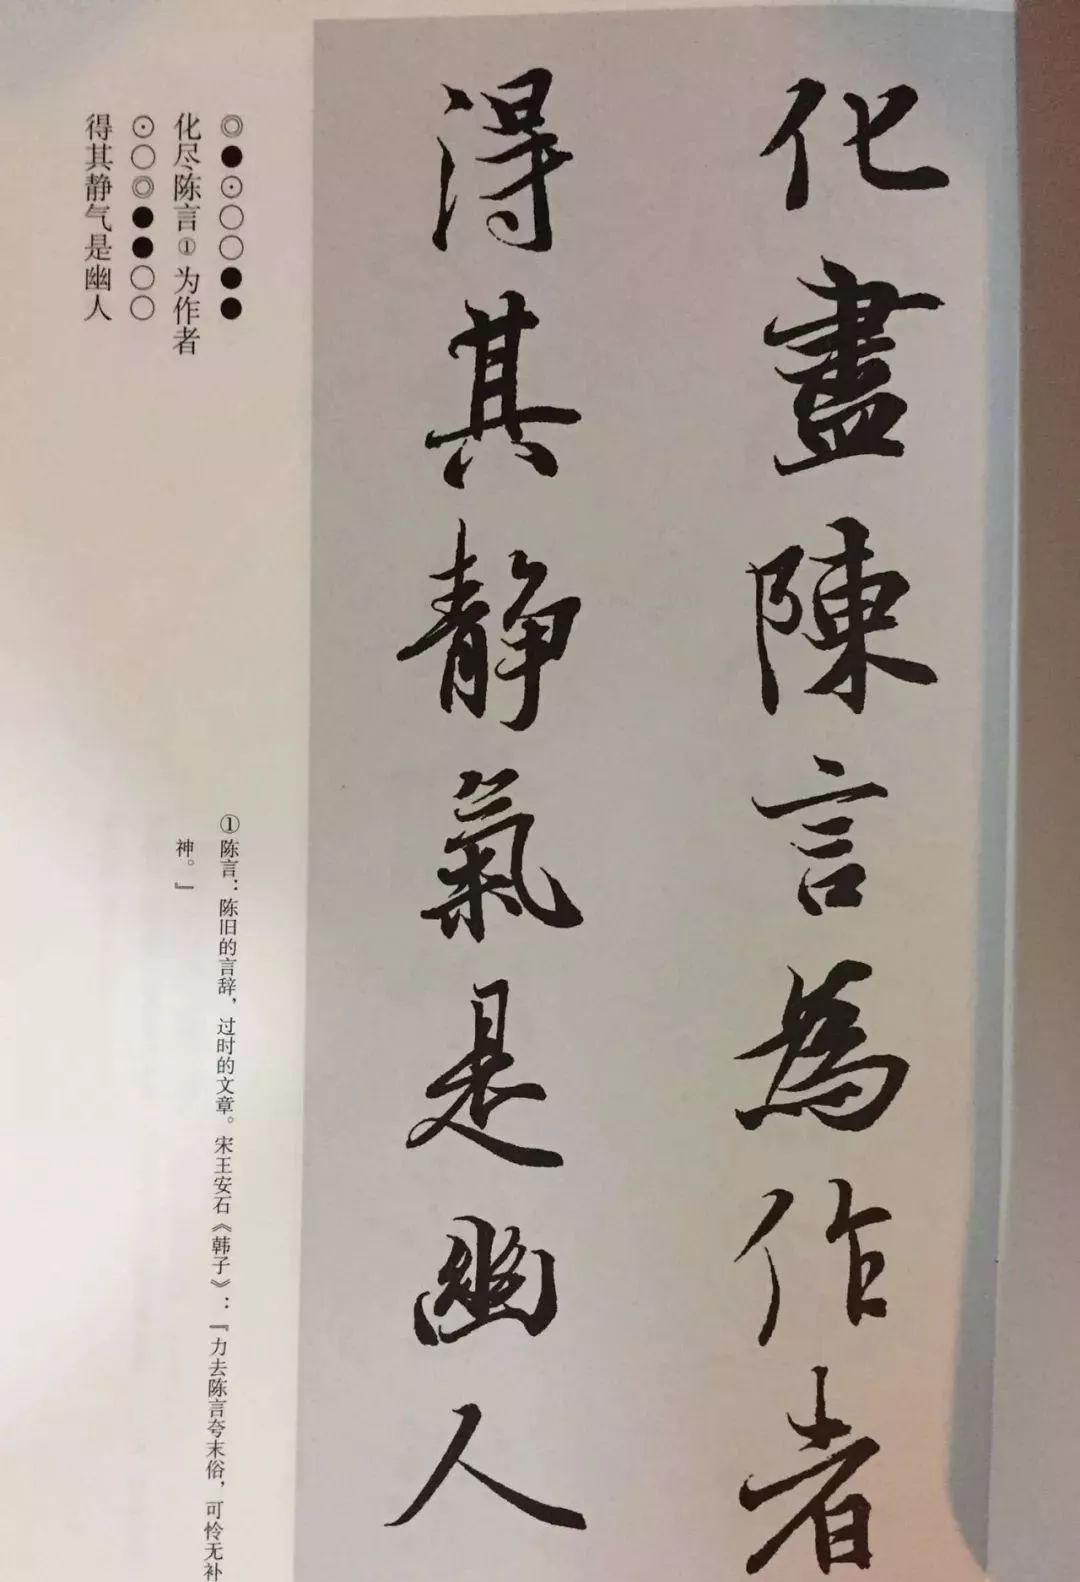 化盡陳言為作者
得其静氣是幽人
◎●⊙○○●●
化尽陈言①为作者
⊙○◎●●○○
得其静气是幽人
①陈言：陈旧的言辞，过时的文章。宋王安石《韩子》：『力去陈言夸末俗，可怜无补
神。』